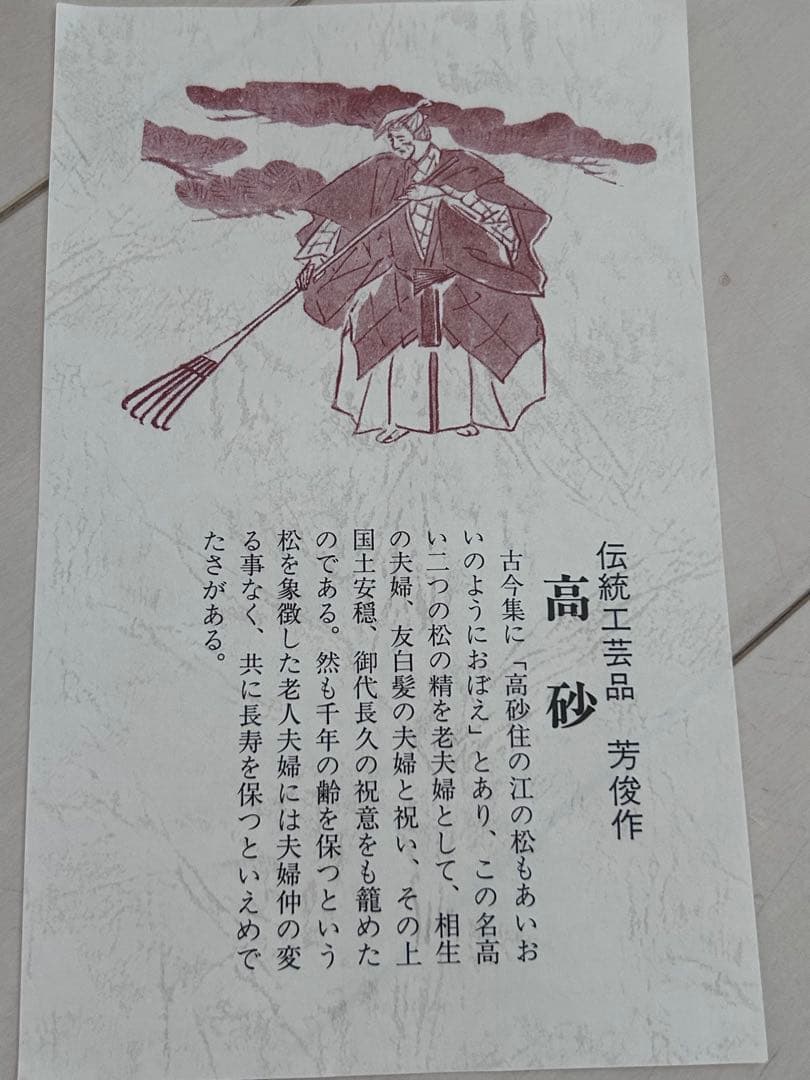 伝統工芸品　芳俊作
高砂
古今集に「高砂住の江の松もあいお
いのようにおぼえ」とあり、この名高
い二つの松の精を老夫婦として、相生
の夫婦、友白髪の夫婦と祝い、その上
国土安穏、御代長久の祝意をも籠めた
のである。然も千年の齢を保つという
松を象徴した老人夫婦には夫婦仲の変
る事なく、共に長寿を保つといえめで
たさがある。